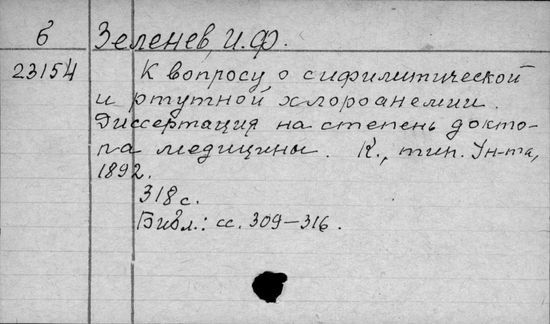 б Зеленев, И. Ф.
23154 К вопросу о сифилитической
и ртутной хлороанемии.
Диссертация на степень докто-
ра медицины. К., тип. Ун-та,
1892.
318 с.
Библ.: сс. 309–316.